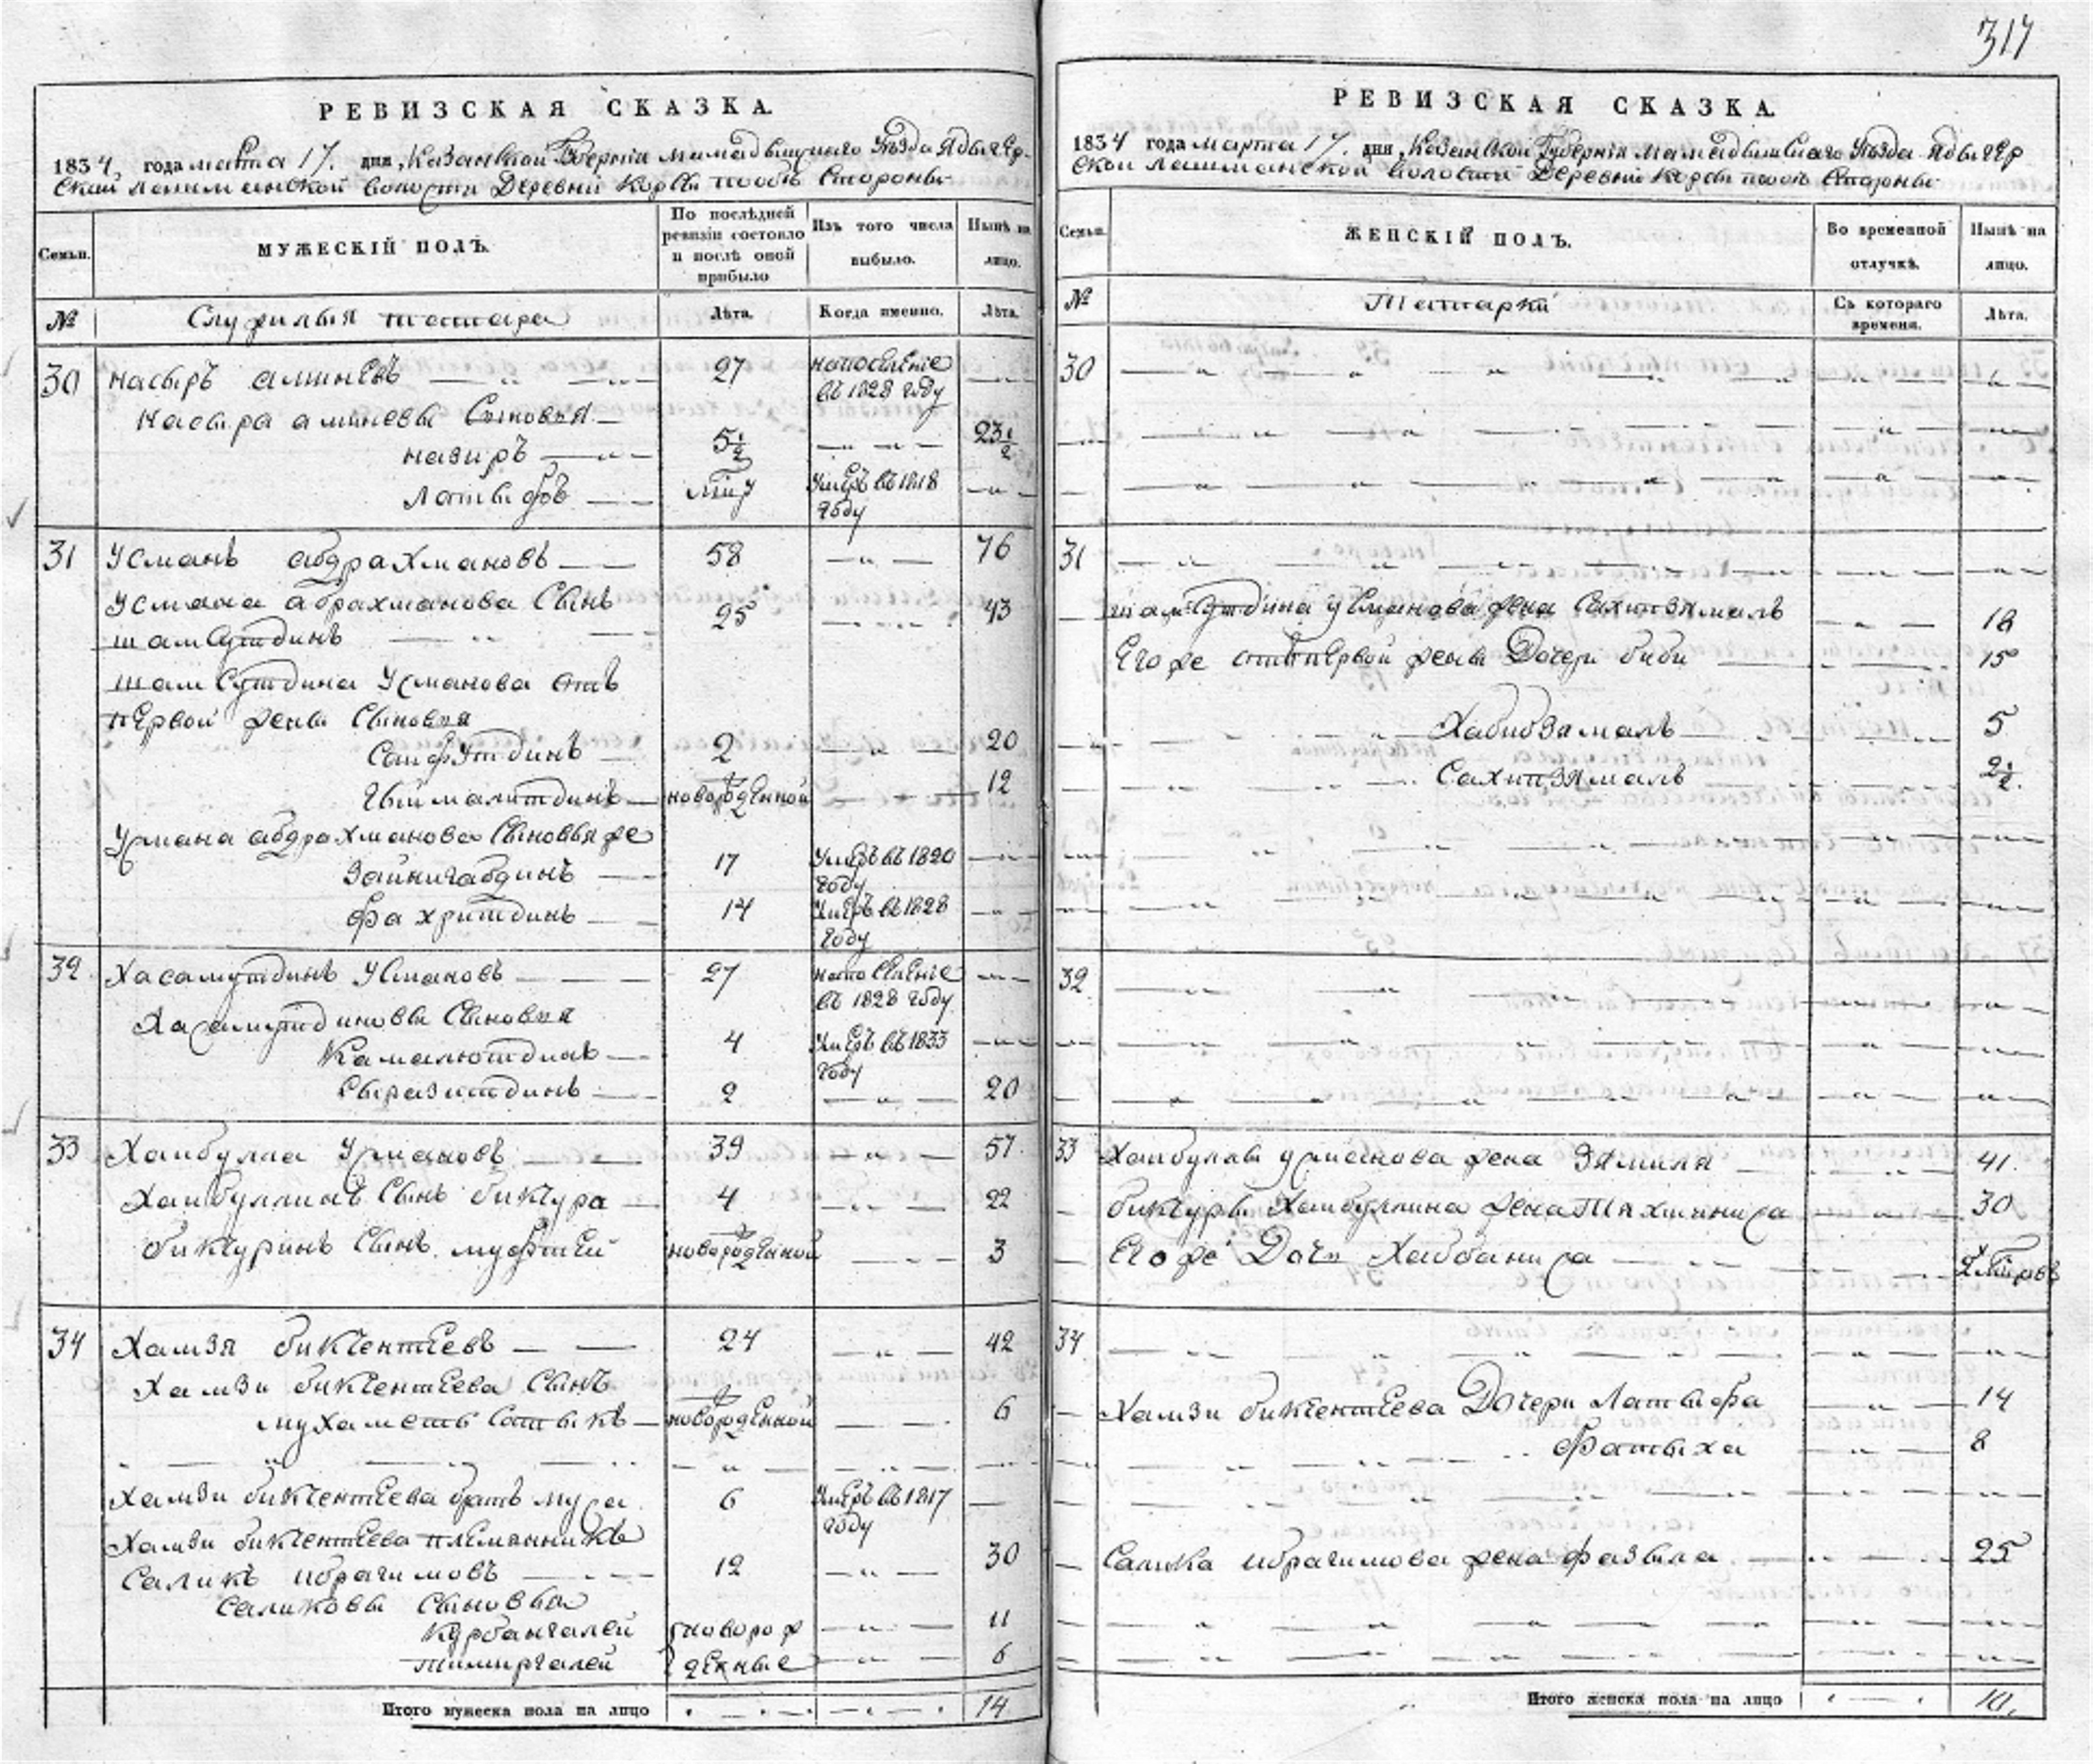 317
РЕВИЗСКАЯ СКАЗКА.
1834 года марта 17. дня, Казанской Губерніи мамадышскаго Уѣзда Ядыгер
ской лашманской волости Деревни Корсы по объ Стороны
Семьи.
МУЖЕСКІЙ ПОЛЪ.
По послѣдней ревизіи состояло и послѣ оной прибыло
Изъ того числа выбыло.
Нынѣ на лицо.
№
Служилыя татара
Лѣта.
Когда именно.
Лѣта.
30 Насыръ аминевъ 27 на поселение въ 1828 году
Насыра аминева Сыновья
назиръ 5½ 23½
латыфъ Умеръ въ 1818 году
31 Усманъ абдрахмановъ 58 76
Усмана абрахманова Сынъ
шамсутдинъ 25 43
шамсутдина Усманова отъ
первой жены Сыновья
Сайфутдинъ 2 20
Гыймалитдинъ новорожденной 12
Усмана абдрахманова Сыновья же
Зайнигабдинъ 17 Умеръ въ 1820 году
Фахритдинъ 14 Умеръ въ 1828 году
32 Хасамутдинъ Усмановъ 27 на поселение въ 1828 году
Хасамутдиновы Сыновья
Камалютдинъ 4 Умеръ въ 1833 году
Сыразитдинъ 2 20
33 Хаибулла Усмановъ 39 57
Хаибуллинъ Сынъ биктура 4 22
биктуринъ Сынъ муфтей новорожденной 3
34 Хамзя биктентеевъ 24 42
Хамзи биктентеева Сынъ
мухаметь Сатыкъ новорожденной 6
Хамзи биктентеева братъ муса 6 Умеръ въ 1817 году
Хамзи биктентеева племянникъ
Саликъ ибрагимовъ 12 30
Саликовы Сыновья
Курбангалей новорож 11
тимиргалей денные 6
Итого мужеска пола на лицо 14
РЕВИЗСКАЯ СКАЗКА.
1834 года марта 17. дня, Казанской Губерніи мамадышскаго Уѣзда Ядыгер
ской лашманской волости Деревни Корсы по объ Стороны
Семьи.
ЖЕНСКІЙ ПОЛЪ.
Во временной отлучкѣ.
Нынѣ на лицо.
№
Татарки
Съ котораго времени.
Лѣта.
30
31
шамсутдина усманова жена Сахипзямалъ 18
Его же отъ первой жены Дочери биби 15
Хабибзямалъ 5
Сахипзямалъ 2½
32
33 Хаибулы усманова жена Зямиля 41
биктуры Хаибуллина жена Тяхшиниса 30
Его же Дочь Хаббаниса
34
Хамзи биктентеева Дочери Латыфа 14
Фатыха 8
Салика ибрагимова жена фазыла 25
Итого женска пола на лицо 10.